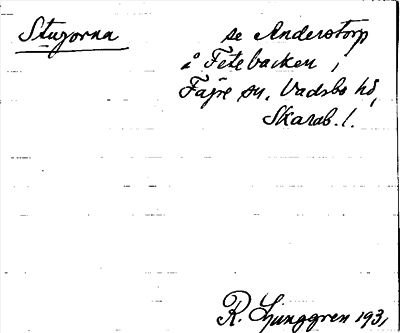 Stugorna
se Anderstorp
å Fetebacken,
Fägre sn, Vadsbo hd,
Skarab. l.
R. Ljunggren 193